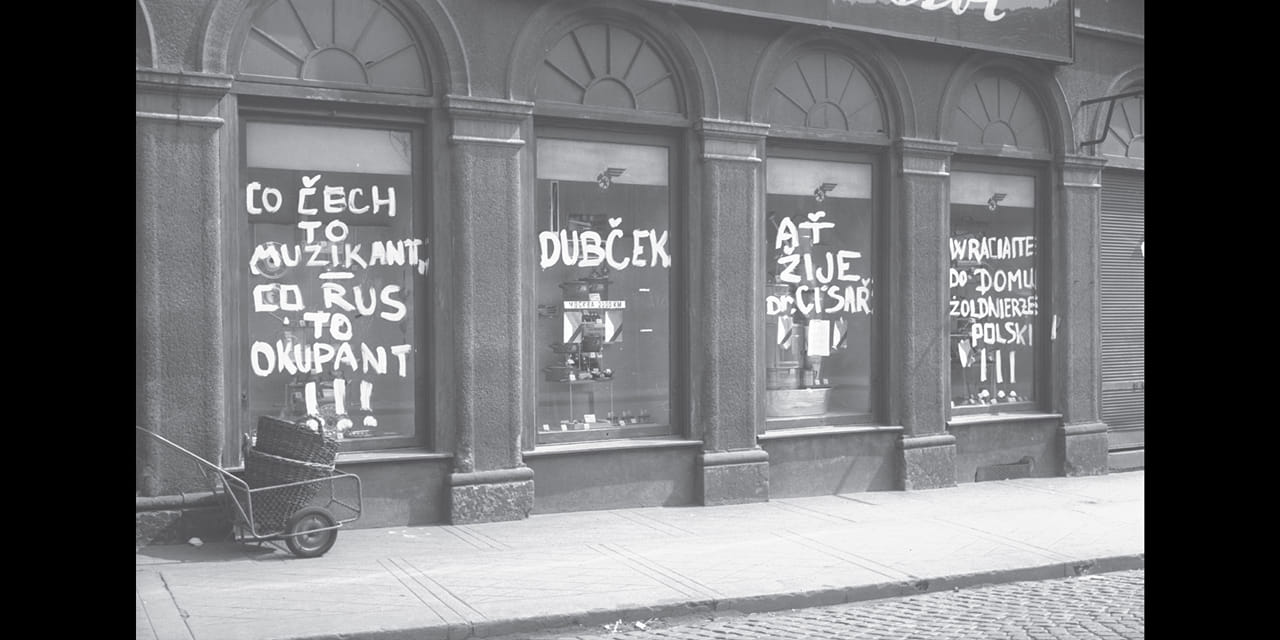 CO ČECH
TO
MUZIKANT,
CO RUS
TO
OKUPANT
!!!
DUBČEK
AŤ
ŽIJE
Dr. CÍSAŘ
WRACIAJTE
DO DOMU
ŻOŁDNIERZE
POLSKI
!!!